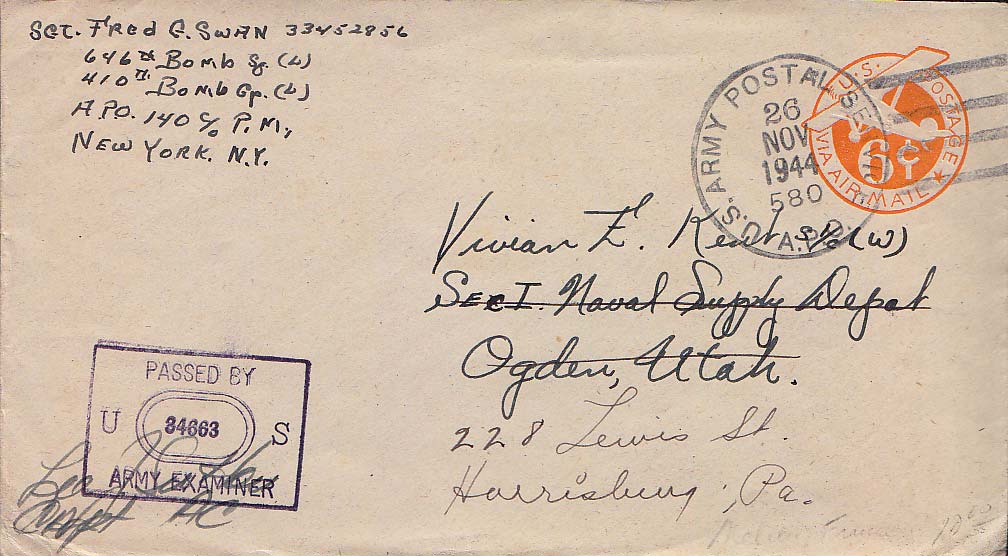 SGT. FRED G. SWAN 33452856
646th Bomb Sq. (L)
410th Bomb Gp. (L)
A.P.O. 140 c/o P.M.,
NEW YORK. N.Y.
ARMY POSTAL SERVICE
26
NOV
1944
580
U.S. A.P.O.
U.S. POSTAGE
6¢
VIA AIR MAIL
Vivian E. Kent (W)
Sec I. Naval Supply Depot
Ogden, Utah.
228 Lewis St.
Harrisburg, Pa.
PASSED BY
U 34663 S
ARMY EXAMINER
Capt AC